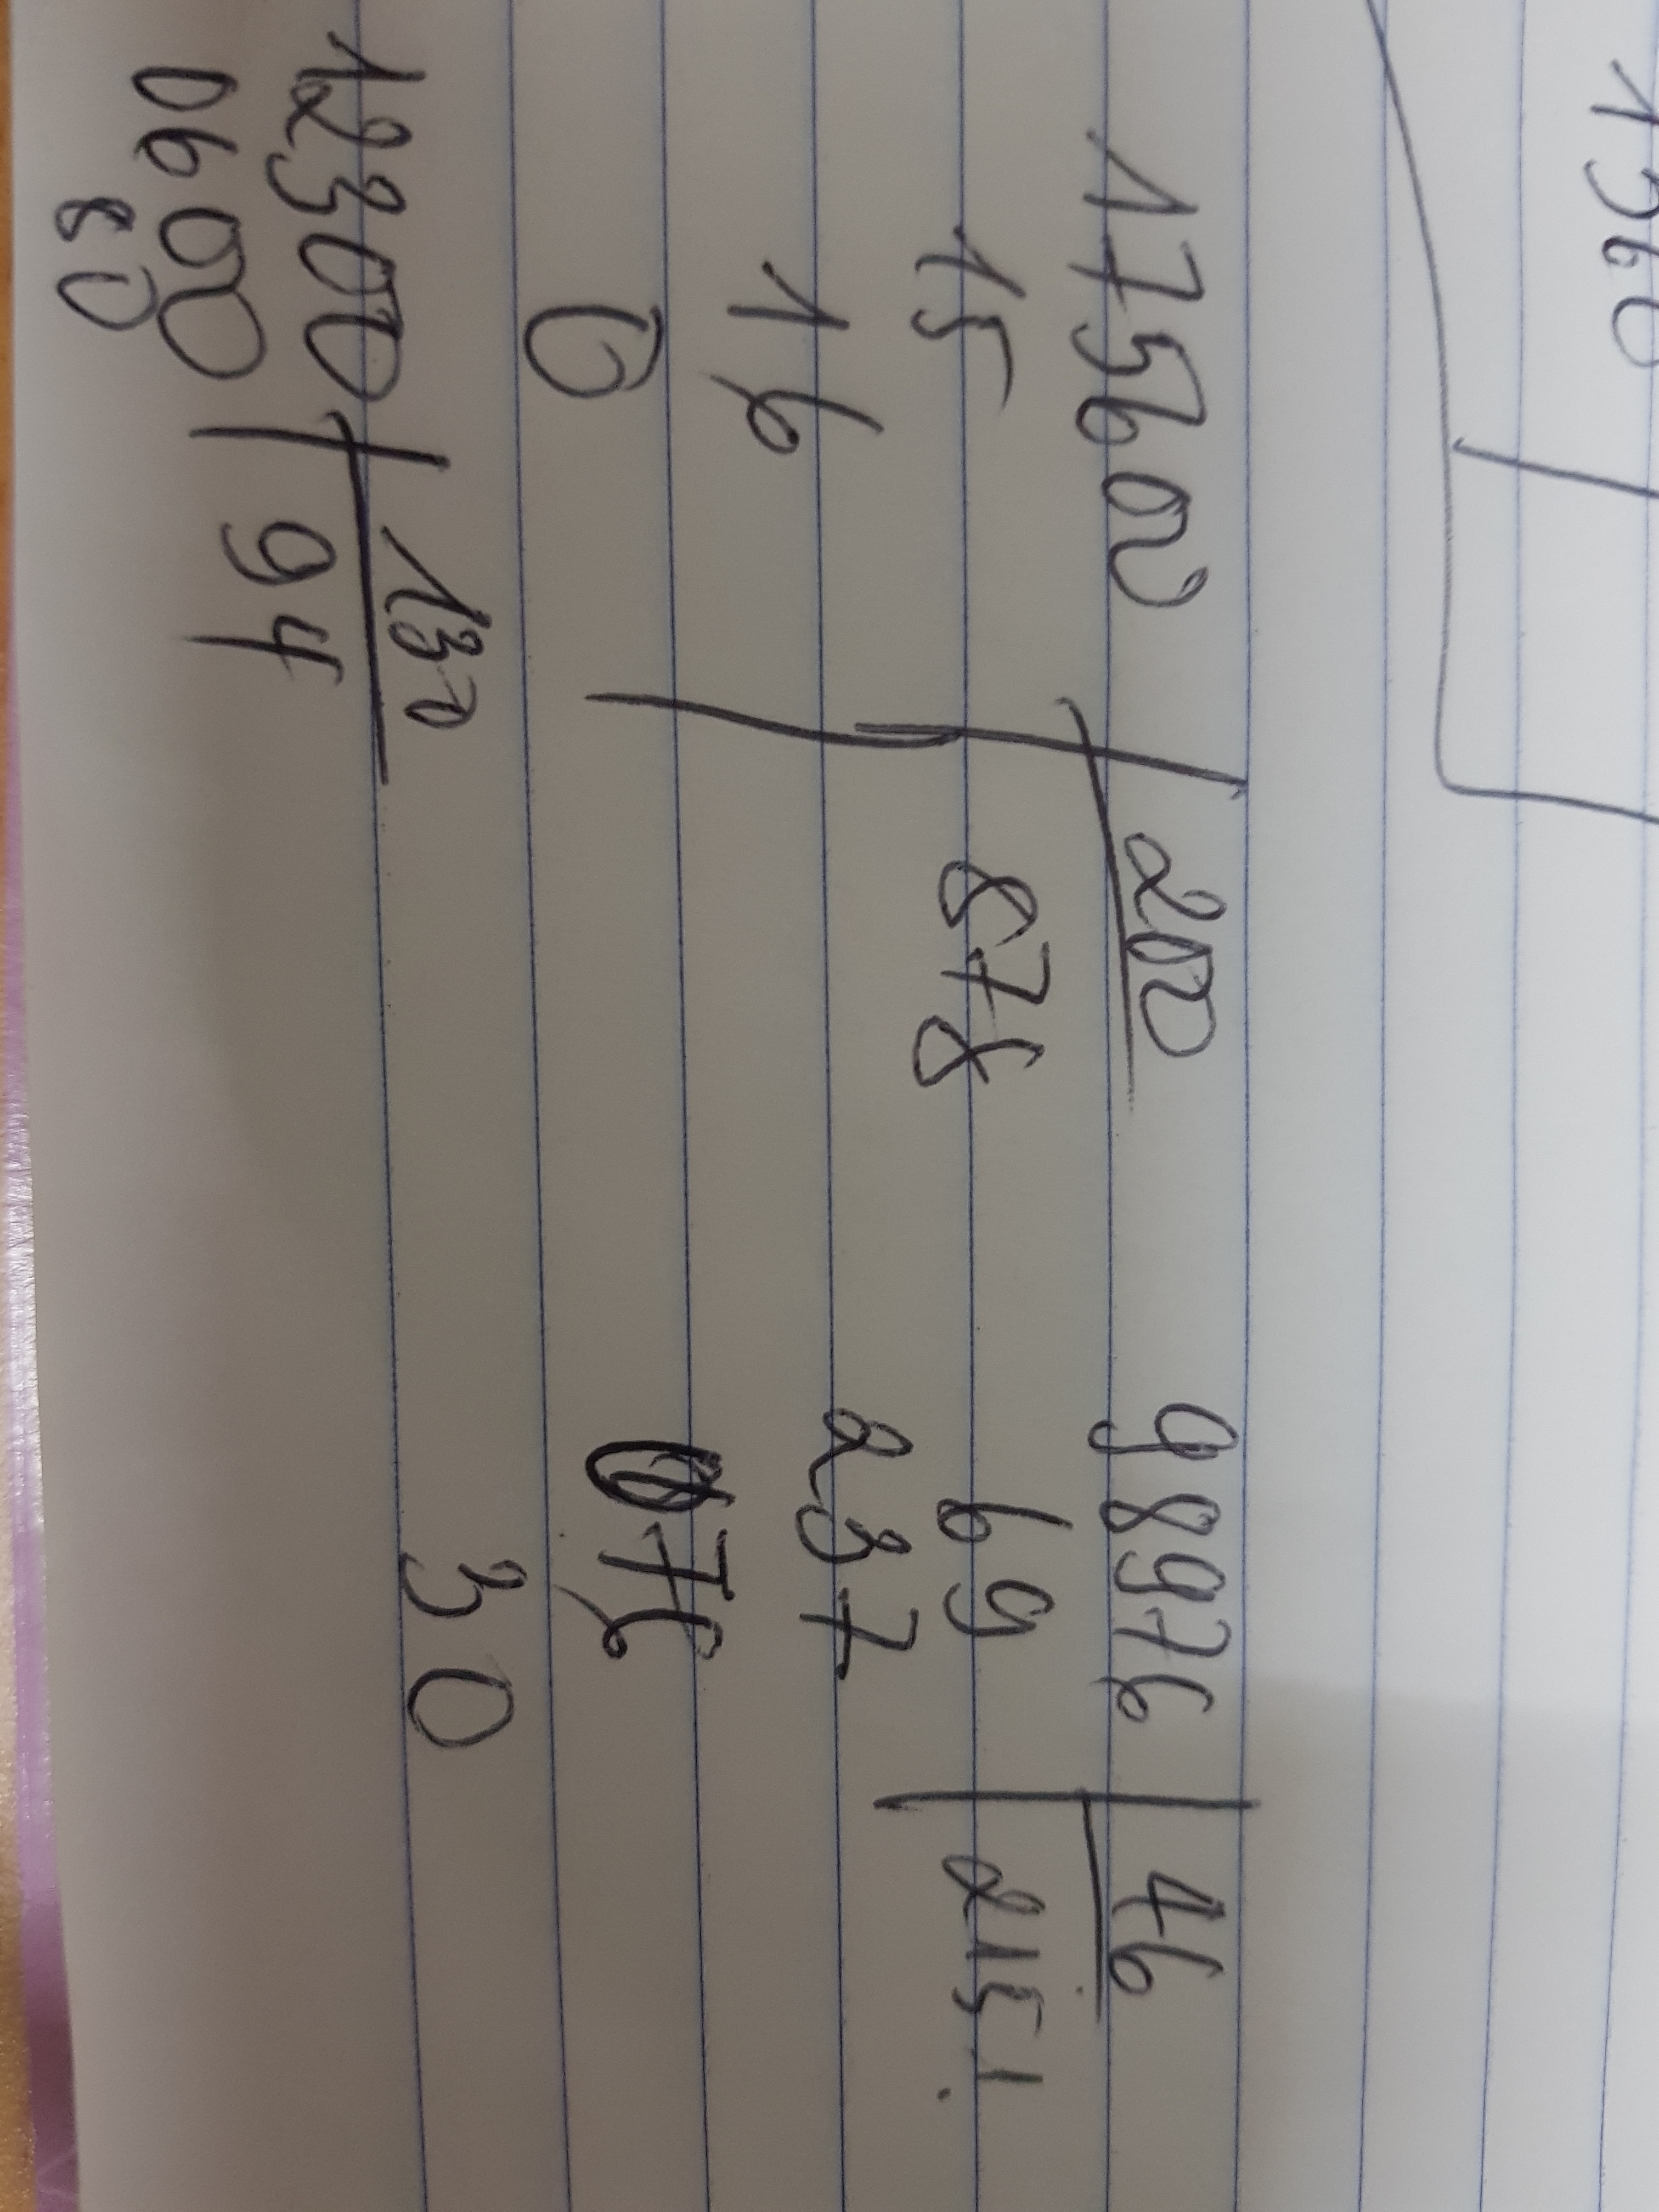 1560
175600 200 98976 46
15 878 69 2151
16 237
0 076
30
12300 130
0600 94
80